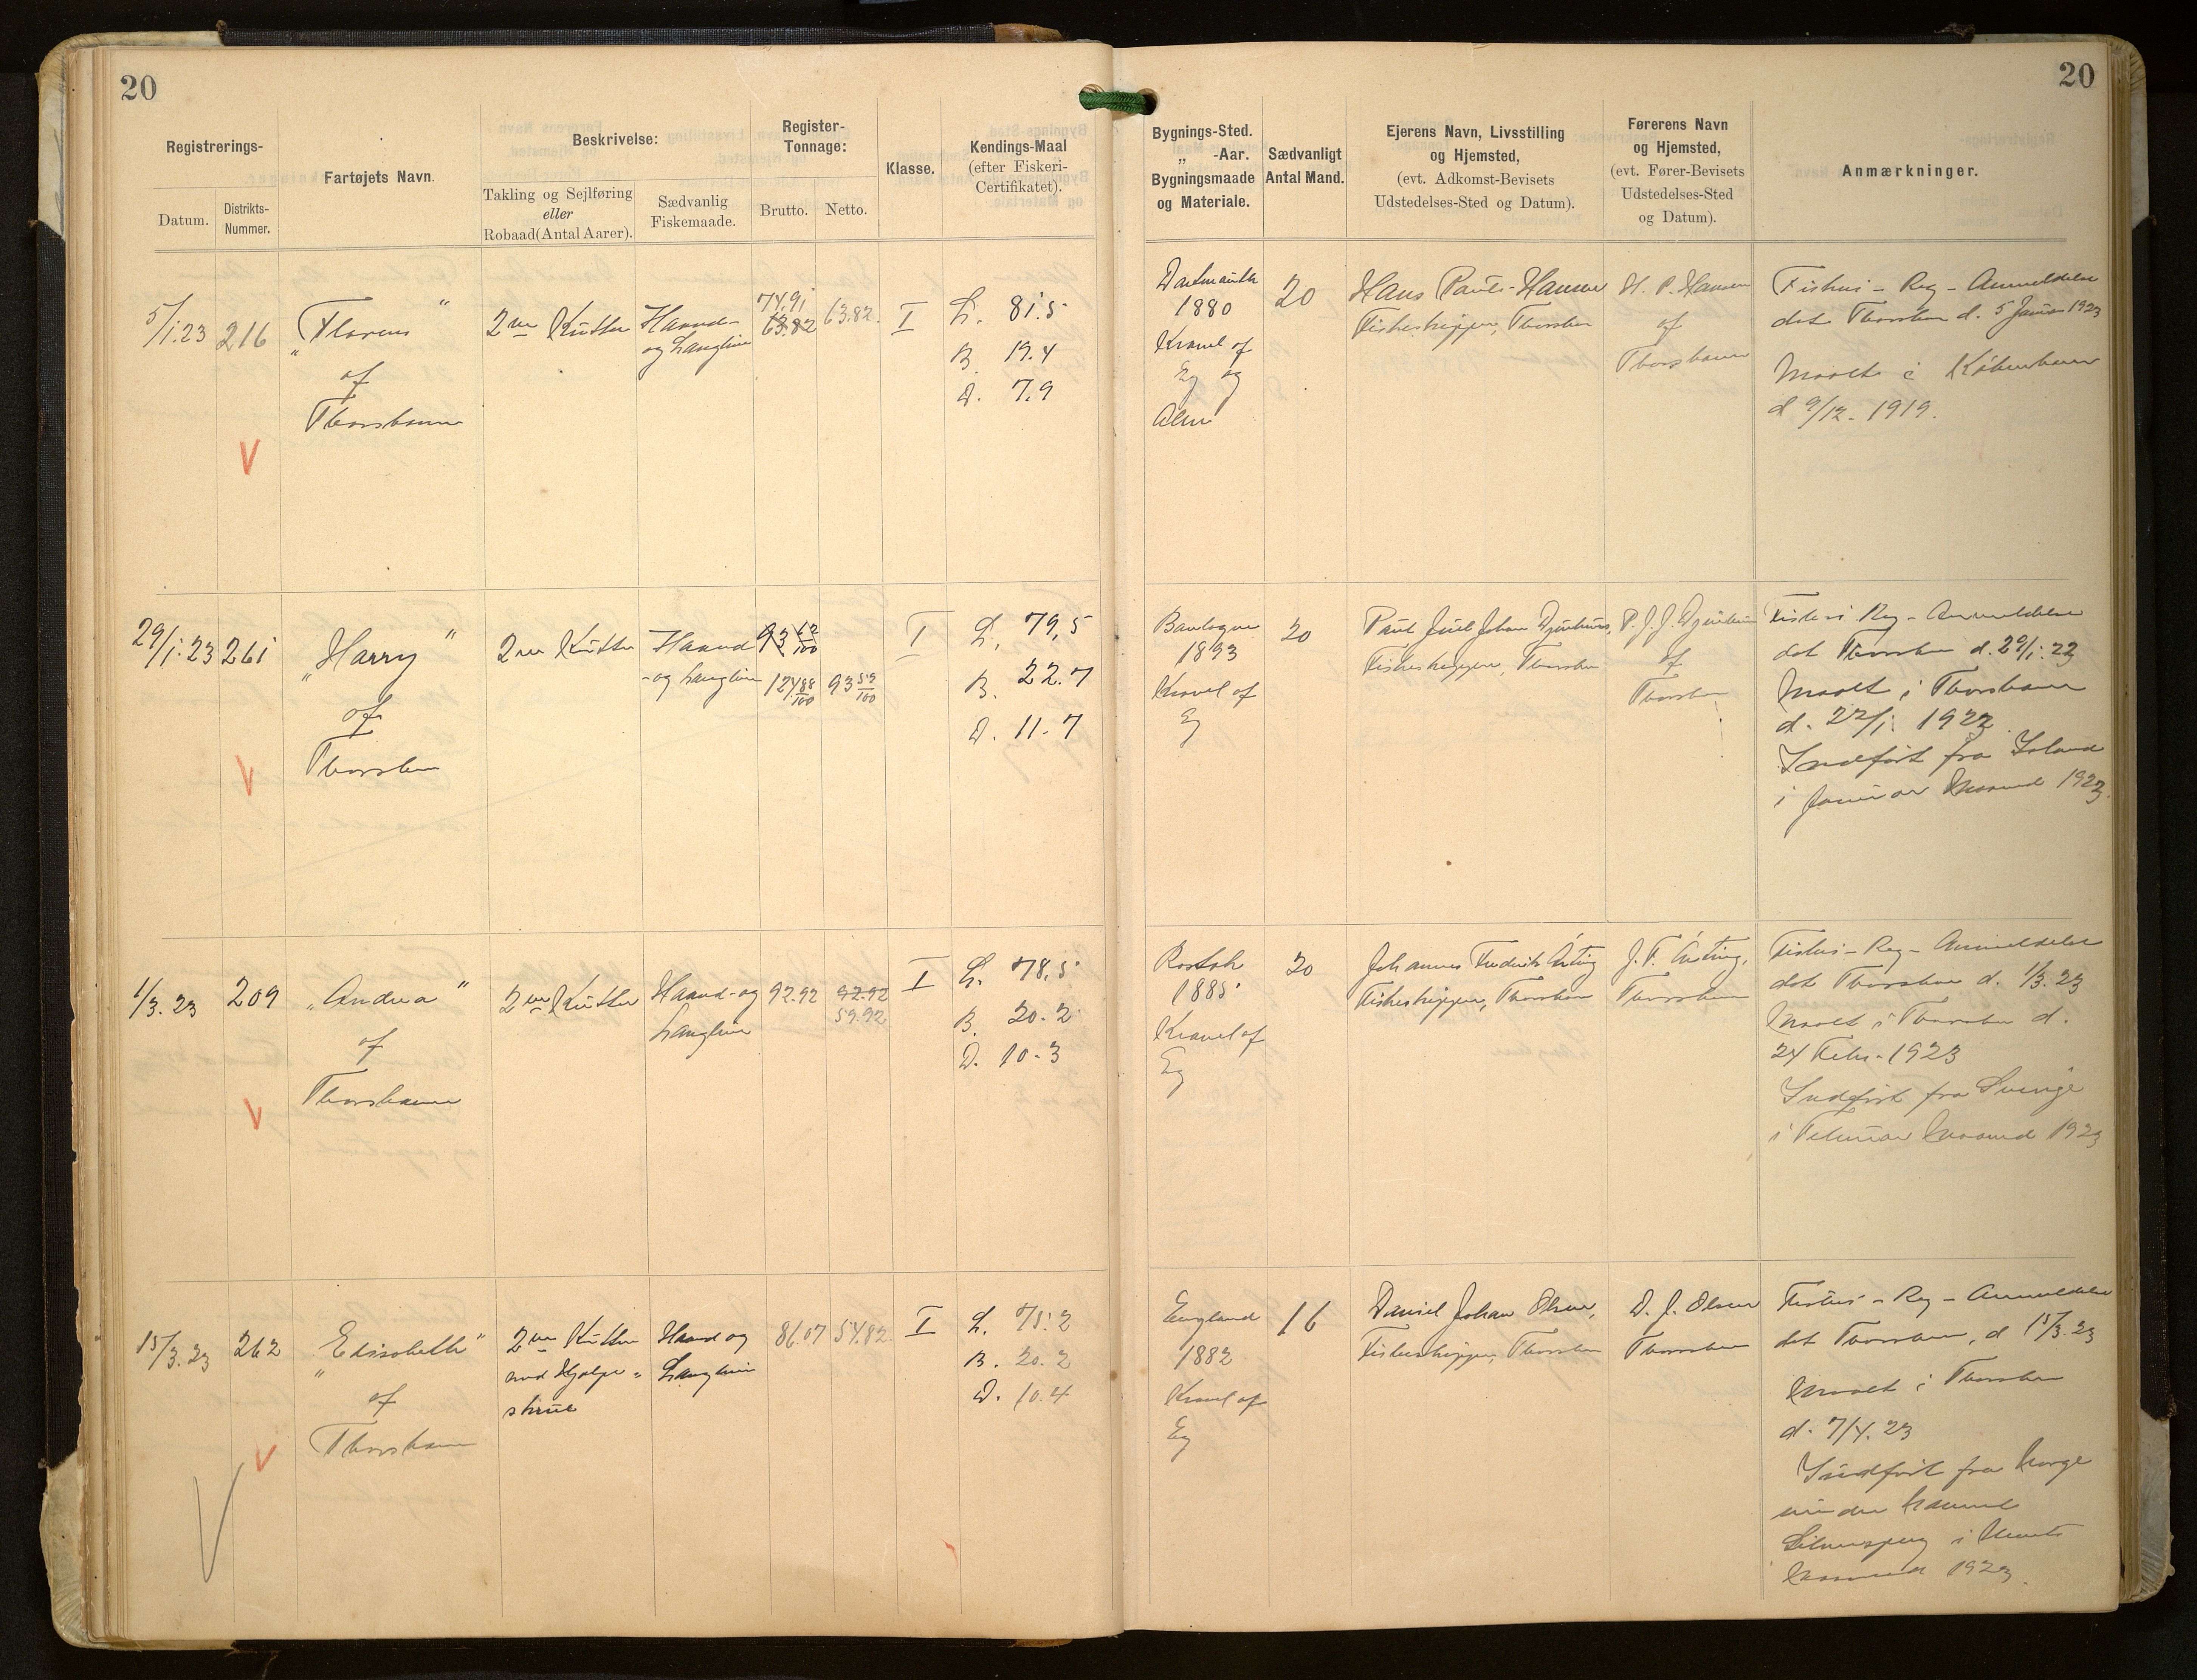 20
20
Registrerings-
Datum.
Distrikts-
Nummer.
Fartøjets Navn.
Beskrivelse:
Takling og Sejlføring
eller
Robaad (Antal Aarer).
Sædvanlig
Fiskemaade.
Register-
Tonnage:
Brutto.
Netto.
Klasse.
Kendings-Maal
(efter Fiskeri-
Certifikatet).
Bygnings-Sted.
„ -Aar.
Bygningsmaade
og Materiale.
Sædvanligt
Antal Mand.
Ejerens Navn, Livsstilling
og Hjemsted,
(evt. Adkomst-Bevisets
Udstedelses-Sted og Datum).
Førerens Navn
og Hjemsted,
(evt. Fører-Bevisets
Udstedelses-Sted
og Datum).
Anmærkninger.
5/1.23
216
„Florens“
af
Thorshavn
V
2m Kutter
Haand-
og Langline
74.91
63.82
63.82
I
L. 81.5
B. 19.4
D. 7.9
Dartmouth
1880
Kravel af
Eg og
Alm
20
Hans Pauli Hansen
Fiskeskipper, Thorshavn
H. P. Hansen
af
Thorshavn
Fiskeri-Reg-Anmeldelse
dat Thorshavn d. 5 Januar 1923
Maalt i København
d 9/12. 1919.
29/1.23
261
„Harry“
af
Thorshavn
V
2m Kutter
Haand
-og Langline
93 62/100
124 88/100
93 59/100
I
L. 79,5
B. 22.7
D. 11.7
Boulogne
1893
Kravel af
Eg
20
Poul Juel Johan Djurhuus,
Fiskeskipper, Thorshavn
P. J. J. Djurhuus
af
Thorshavn
Fiskeri Reg-Anmeldelse
dat Thorshavn d. 29/1.23
Maalt i Thorshavn
d. 27/1. 1922
Indført fra Island
i Januar Maaned 1923.
1/3.23
209
„Andrea“
af
Thorshavn
V
2m Kutter
Haand-og
Langline
92.92
92.92
59.92
I
L. 78.5
B. 20.2
D. 10.3
Rostok
1885
Kravel af
Eg
20
Johannes Fredrik Østing
Fiskeskipper, Thorshavn
J. F. Østing,
Thorshavn
Fiskeri-Reg-Anmeldelse
dat Thorshavn d. 1/3.23
Maalt i Thorshavn d.
24 Febr. 1923
Indført fra Sverige
i Februar Maaned 1923
15/3.23
262
„Elisabeth“
af
Thorshavn
V
2m Kutter
med Hjælpe-
skrue
Haand og
Langline
86.07
54.82
I
L. 75.2
B. 20.2
D. 10.4
England
1882
Kravel af
Eg
16
Daniel Johan Olsen,
Fiskeskipper, Thorshavn
D. J. Olsen
Thorshavn
Fiskeri-Reg-Anmeldelse
dat Thorshavn, d 15/3.23
Maalt i Thorshavn
d. 7/4.23
Indført fra Norge
under Navnet
i Marts
Maaned 1923.